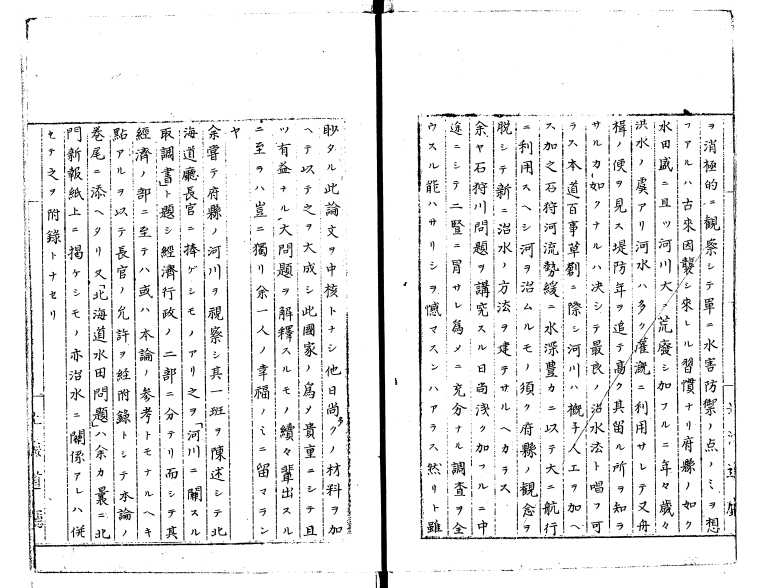 ヲ消極的ニ觀察シテ單ニ水害防禦ノ点ノミヲ想
フアルハ古來因襲シ來レル習慣ナリ府縣ノ如ク
水田盛ニ且ツ河川大ニ荒廢シ加フルニ年々歳々
洪水ノ虞アリ河水ハ多ク灌漑ニ利用サレテ又舟
楫ノ便ヲ見ス堤防年ヲ追テ高ク其留ル所ヲ知ラ
サルカ如クナルハ决シテ最良ノ治水法ト唱フ可
ラス本道百事草創ニ際シ河川ハ概子人工ヲ加ヘ
ス加之石狩河流勢緩ニ水深豊カニ以テ大ニ航行
ニ利用スヘシ河ヲ治ムルモノ須ク府縣ノ觀念ヲ
脱シテ新ニ治水ノ方法ヲ建テサルヘカラス
余ヤ石狩川問題ヲ講究スル日尚淺ク加フルニ中
途ニシテ二豎ニ冐サレ爲メニ充分ナル調査ヲ全
ウスル能ハサリシヲ憾マスンハアラス然リト雖
聊タル此論文ヲ中核トナシ他日尚多クノ材料ヲ加
ヘテ以テ之ヲ大成シ此國家ノ爲メ貴重ニシテ且
ツ有益ナル大問題ヲ解釋スルモノ續々輩出スル
ニ至ラハ豈ニ獨リ余一人ノ幸福ノミニ留マラン
ヤ
余嘗テ府縣ノ河川ヲ視察シ其一班ヲ陳述シテ北
海道廳長官ニ捧ケシモノアリ之ヲ「河川ニ關スル
取調書」ト題シ經濟行政ノ二部ニ分テリ而シテ其
經濟ノ部ニ至テハ或ハ本論ノ参考トモナルヘキ
點アルヲ以テ長官ノ允許ヲ経附錄トシテ本論ノ
巻尾ニ添ヘタリ又「北海道水田問題」ハ余カ曩ニ北
門新報紙上ニ掲ケシモノ亦治水ニ關係アレハ併
セテ之ヲ附錄トナセリ